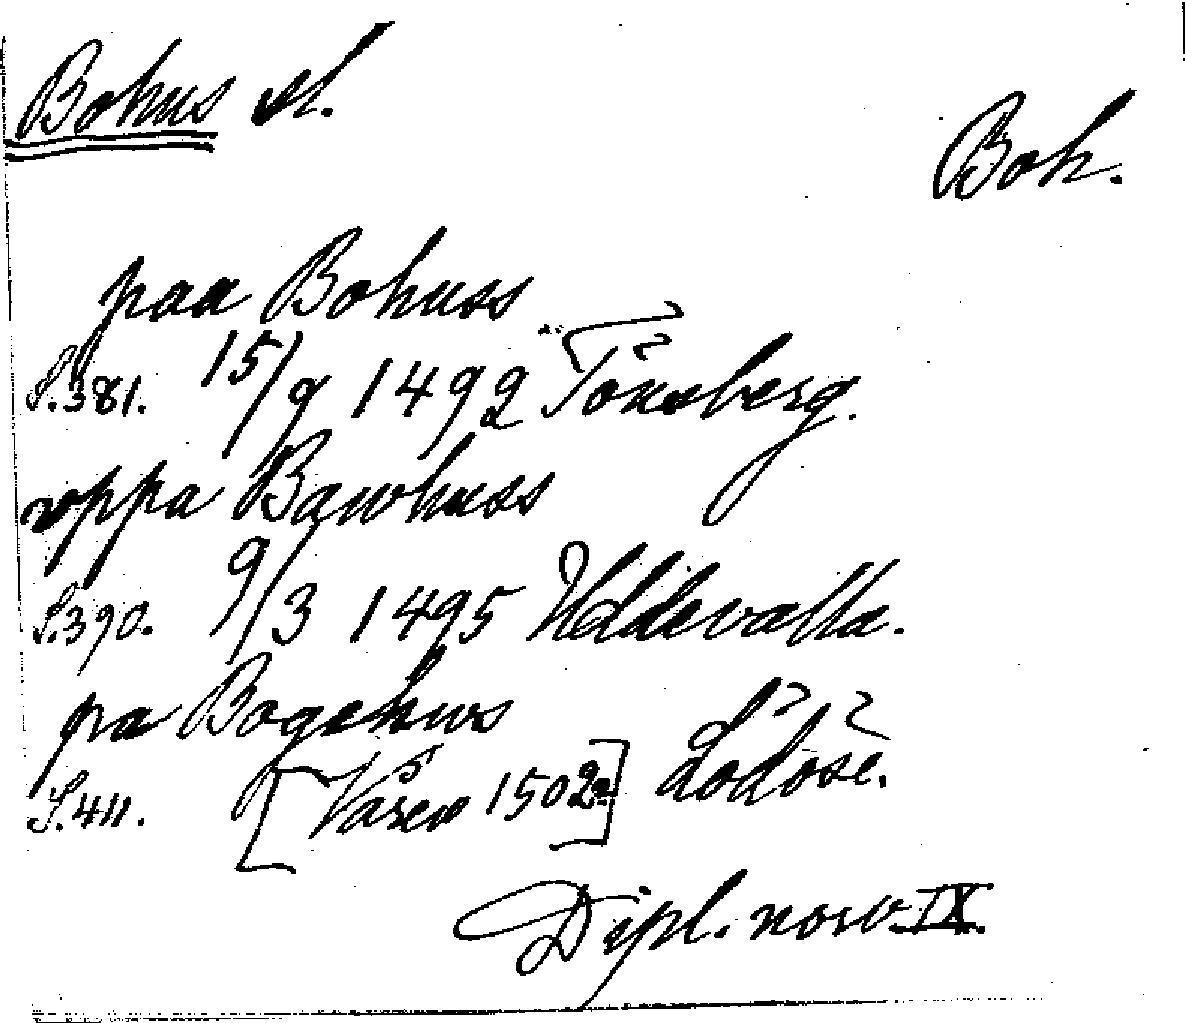 Bohus sl.
Boh.
paa Bohuss
S.381. 15/9 1492 Tönsberg.
oppa Bawhuss
S.390. 9/3 1495 Uddevalla.
pa Bogehws
S.411. [Våren 1502] Lödöse.
Dipl. norv. IX.